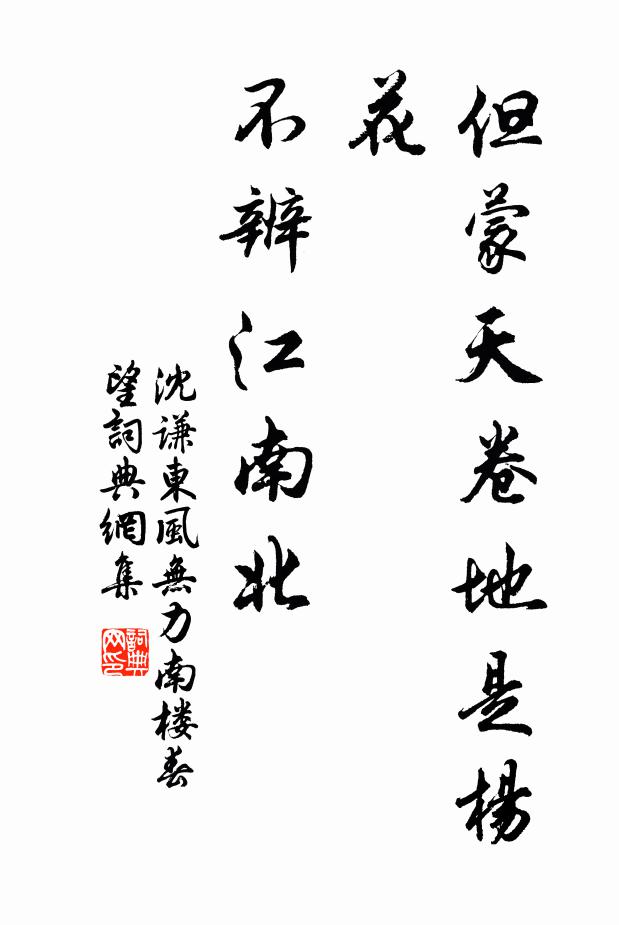 但蒙天卷地是楊
花
不辨江南北
沈謙東風無力南楼春
望詞典網集
詞典
网印